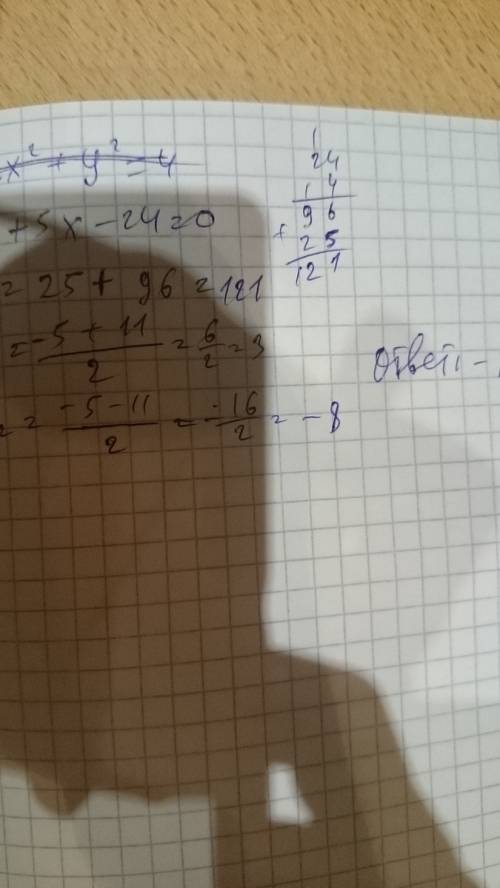 x² + y² = 4
+ 5x - 24 = 0
= 25 + 96 = 121
= -5 + 11 / 2 = 6 / 2 = 3
= -5 - 11 / 2 = -16 / 2 = -8
1
24
1 4
96
+
25
121
Ответ: -